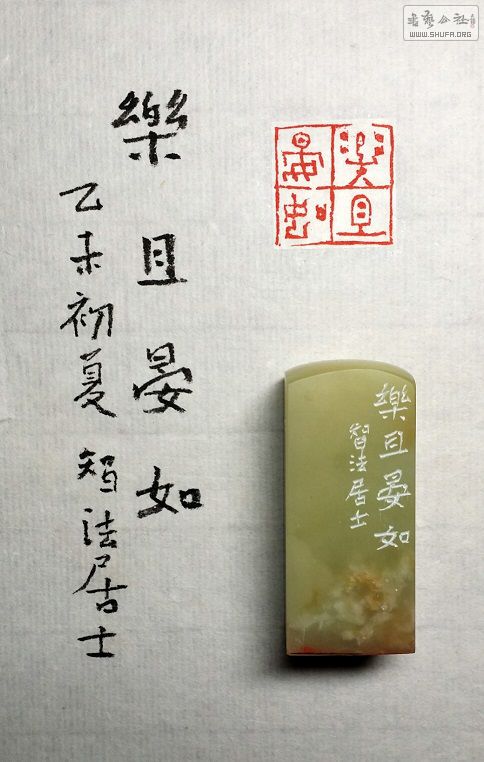 樂且晏如
乙未初夏 智法居士
樂且晏如
樂且晏如
智法居士
書藝公社
WWW.SHUFA.ORG